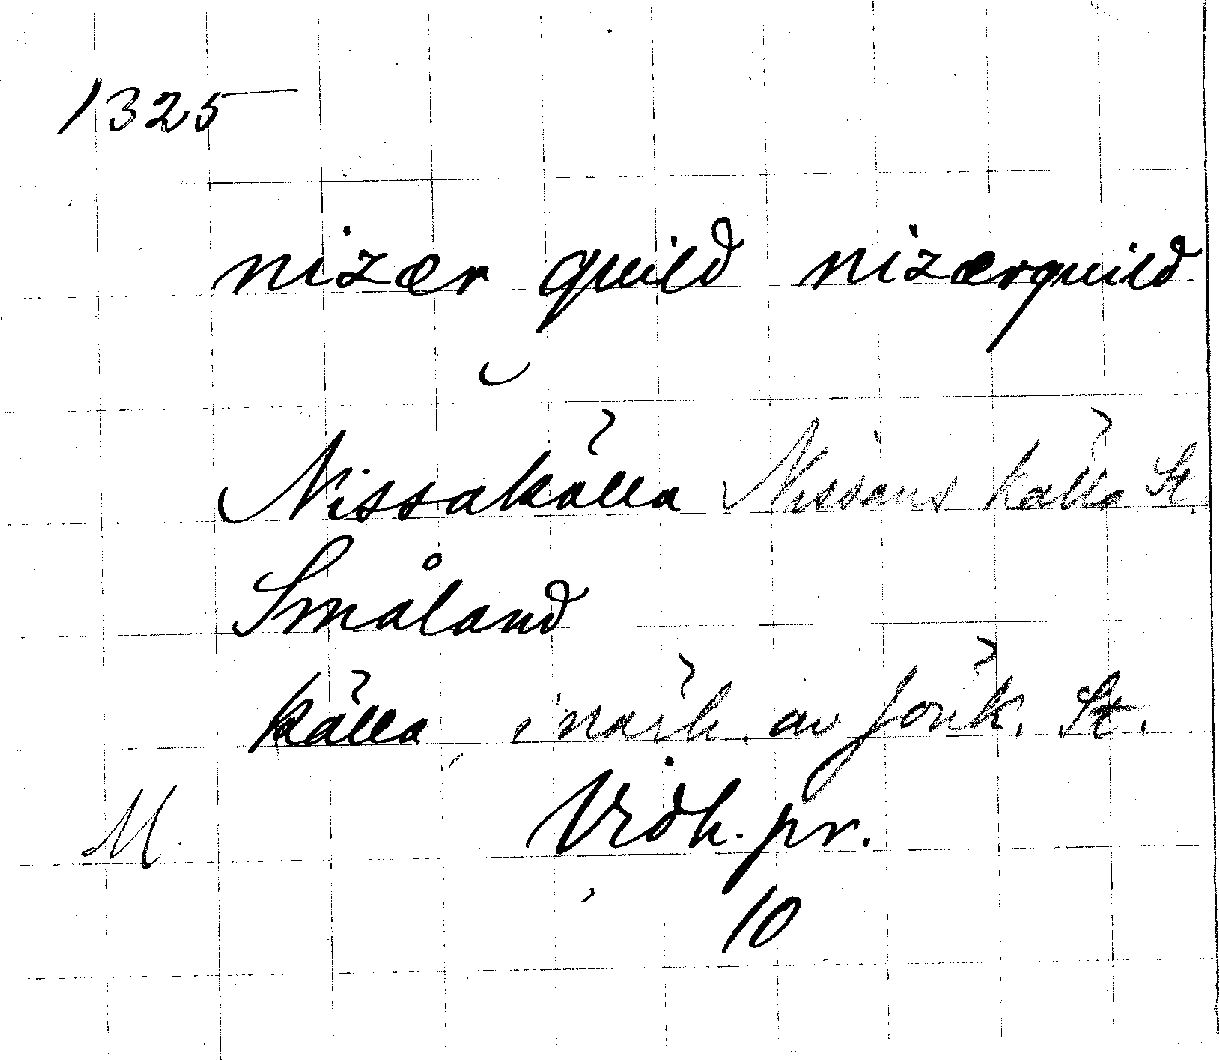 1325
nizær quild nizærquild
Nissakälla Nissans källa St.
Småland
källa, i närh. av Jönk. St.
M. Vidh. pr.
10